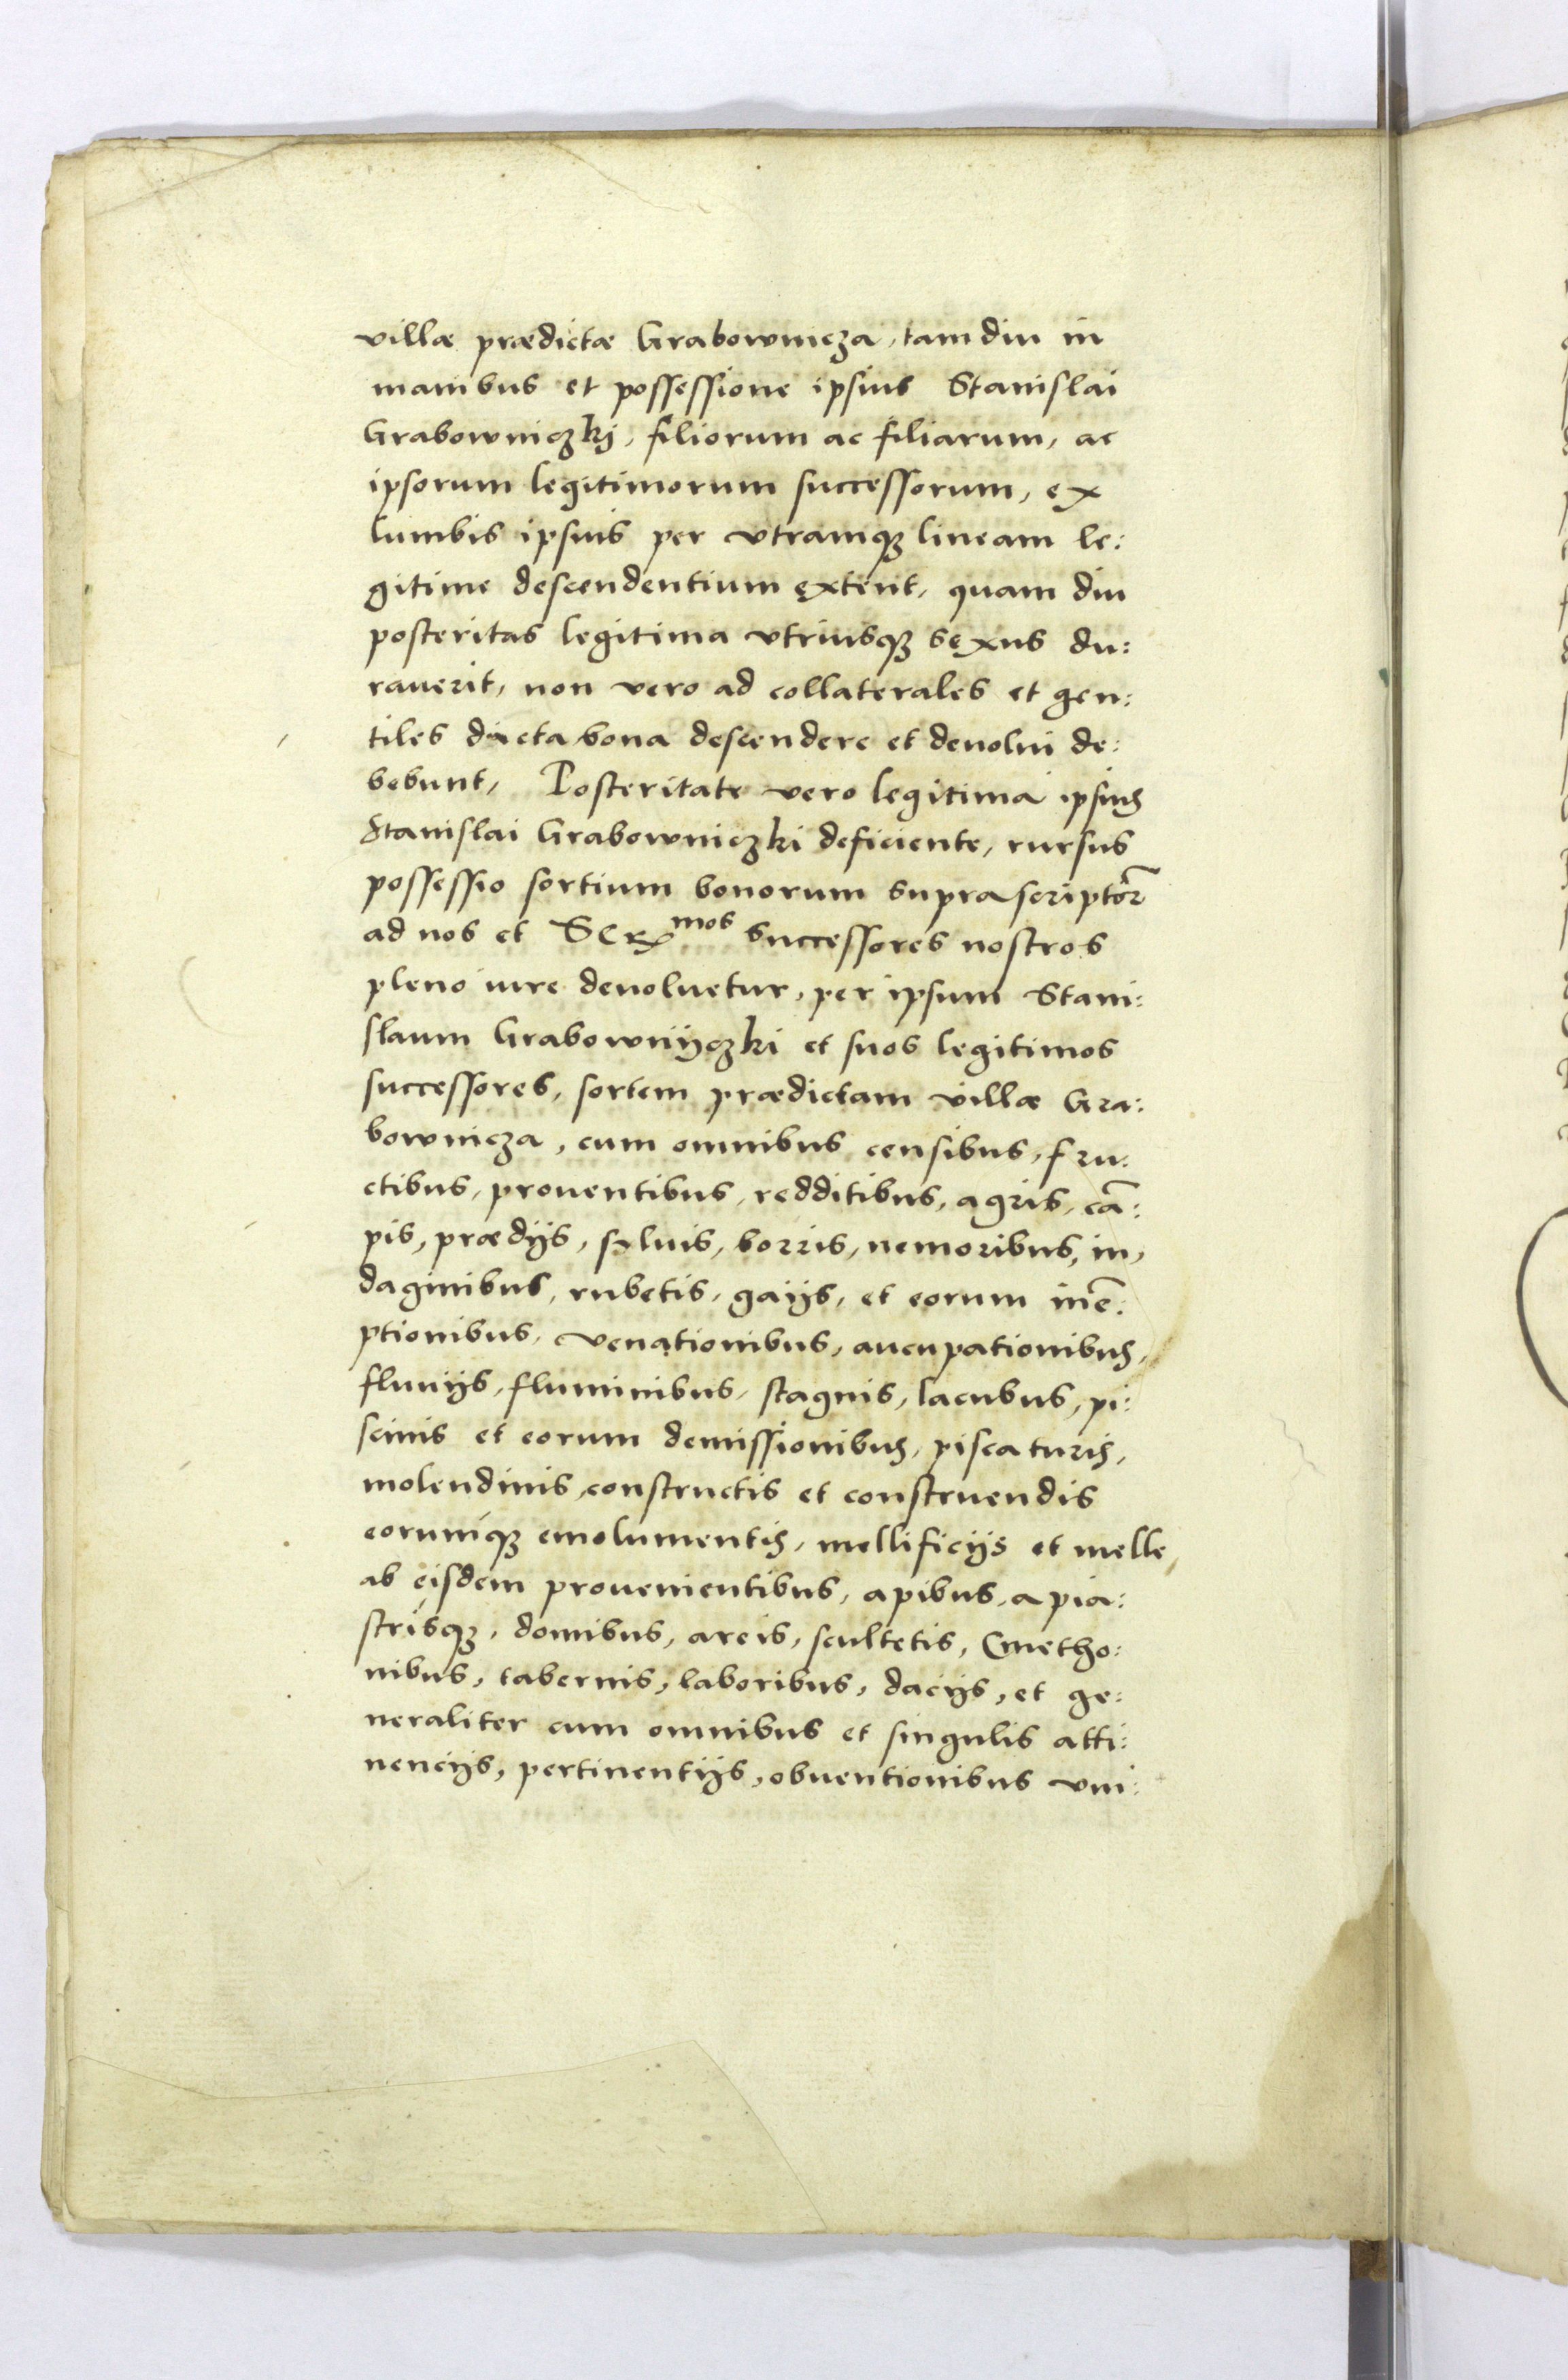 villæ prædictæ Grabownicza, tamdiu in
manibus et possessione ipsius Stanislai
Grabowniczkj, filiorum ac filiarum, ac
ipsorum legitimorum successorum, ex
lumbis ipsius per vtramqꝫ lineam le:
gitime descendentium extent, quam diu
posteritas legitima vtriusqꝫ sexus du:
rauerit, non vero ad collaterales et gen:
tiles dicta bona descendere et deuolui de:
bebunt, Posteritate vero legitima ipsius
Stanislai Grabowniczki deficiente, rursus
possessio sortium bonorum suprascriptor̃
ad nos et Serᵐᵒˢ successores nostros
pleno iure deuoluetur, per ipsum Stani:
slaum Grabownijczki et suos legitimos
successores, sortem prædictam villæ Gra:
bownicza, cum omnibus censibus, fru:
ctibus, prouentibus, redditibus, agris, cã:
pis, prædijs, syluis, borris, nemoribus, in,
daginibus, rubetis, gaijs, et eorum incẽ:
ptionibus, venationibus, aucupationibus,
fluuijs, fluminibus, stagnis, lacubus, pi:
scinis et eorum demissionibus, piscaturis,
molendinis, constructis et construendis
eorumqꝫ emolumentis, mellificijs et melle,
ab eisdem prouenientibus, apibus, apia:
strisqꝫ, domibus, areis, scultetis, Cmetho:
nibus, tabernis, laboribus, dacijs, et ge:
neraliter cum omnibus et singulis atti:
nencijs, pertinentijs, obuentionibus vni: